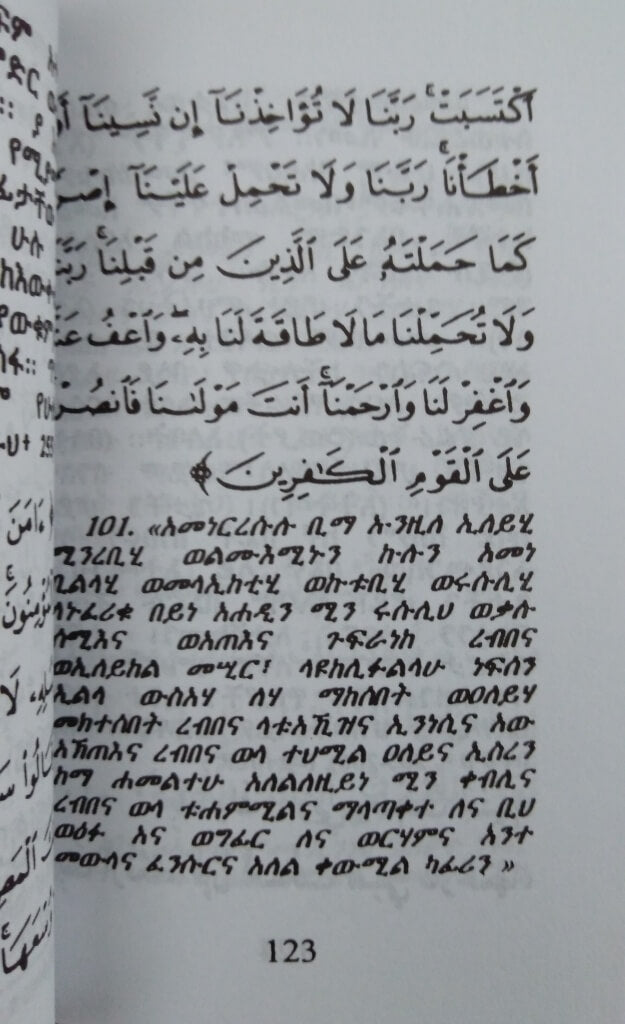 ٱكْتَسَبَتْ ۗ رَبَّنَا لَا تُؤَاخِذْنَآ إِن نَّسِينَآ أَو
أَخْطَأْنَا ۚ رَبَّنَا وَلَا تَحْمِلْ عَلَيْنَآ إِصْر
كَمَا حَمَلْتَهُۥ عَلَى ٱلَّذِينَ مِن قَبْلِنَا ۚ رَبَّ
وَلَا تُحَمِّلْنَا مَا لَا طَاقَةَ لَنَا بِهِۦ ۖ وَٱعْفُ عَنَّ
وَٱغْفِرْ لَنَا وَٱرْحَمْنَآ ۚ أَنتَ مَوْلَىٰنَا فَٱنصُرْ
عَلَى ٱلْقَوْمِ ٱلْكَـٰفِرِينَ
101. «አመነርረሱሉ ቢማ ኡንዚለ ኢለይሂ
ሚንረቢሂ ወልሙእሚኑን ኩሉን አመነ
ቢልላሂ ወመላኢከቲሂ ወኩቱቢሂ ወሩሱሊሂ
ላኑፈሪቁ በይነ አሐዲን ሚን ሩሱሊህ ወቃሉ
ሰሚእና ወአጠእና ጉፍራነክ ረብበና
ወኢለይከል መሢር፤ ላዩከሊፉልላሁ ነፍሰን
ኢልላ ውስአሃ ለሃ ማከሰበት ወዐለይሃ
መክተሰበት ረብበና ላቱአኺዝና ኢንነሲና አው
አኽጠእና ረብበና ወላ ተህሚል ዐለይና ኢስረን
ከማ ሐመልተሁ አለልለዚይነ ሚን ቀብሊና
ረብበና ወላ ቱሐምሚልና ማላጣቀተ ለና ቢህ
ወዕፉ እና ወግፈር ለና ወርሃምና አንተ
መውላና ፈንሱርና አለል ቀውሚል ካፈሪን »
123